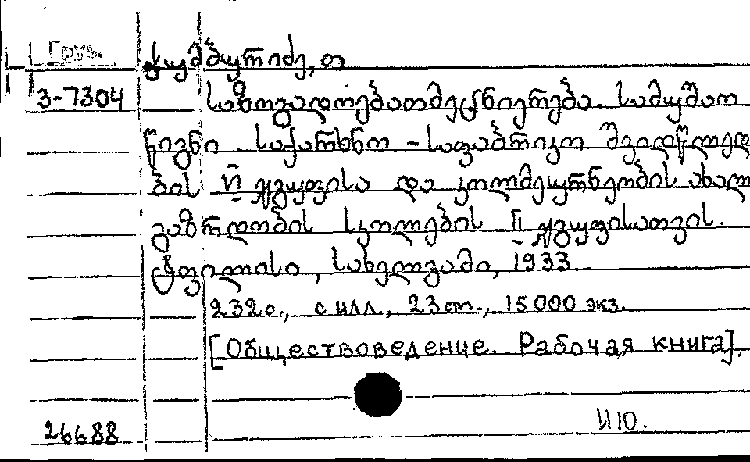 Груз.
3-7304
საზოგადოებათმეცნიერება. სამუშაო
წიგნი საქარხნო - საფაბრიკო შვიდწლედ
ბის II ჯგუფისა და კოლმეურნეობის ახალ
გაზრდობის სკოლების II ჯგუფისათვის.
ტფილისი, სახელგამი, 1933
232 с., с илл., 23 см., 15000 экз.
[Обществоведение. Рабочая книга].
26688 И10.